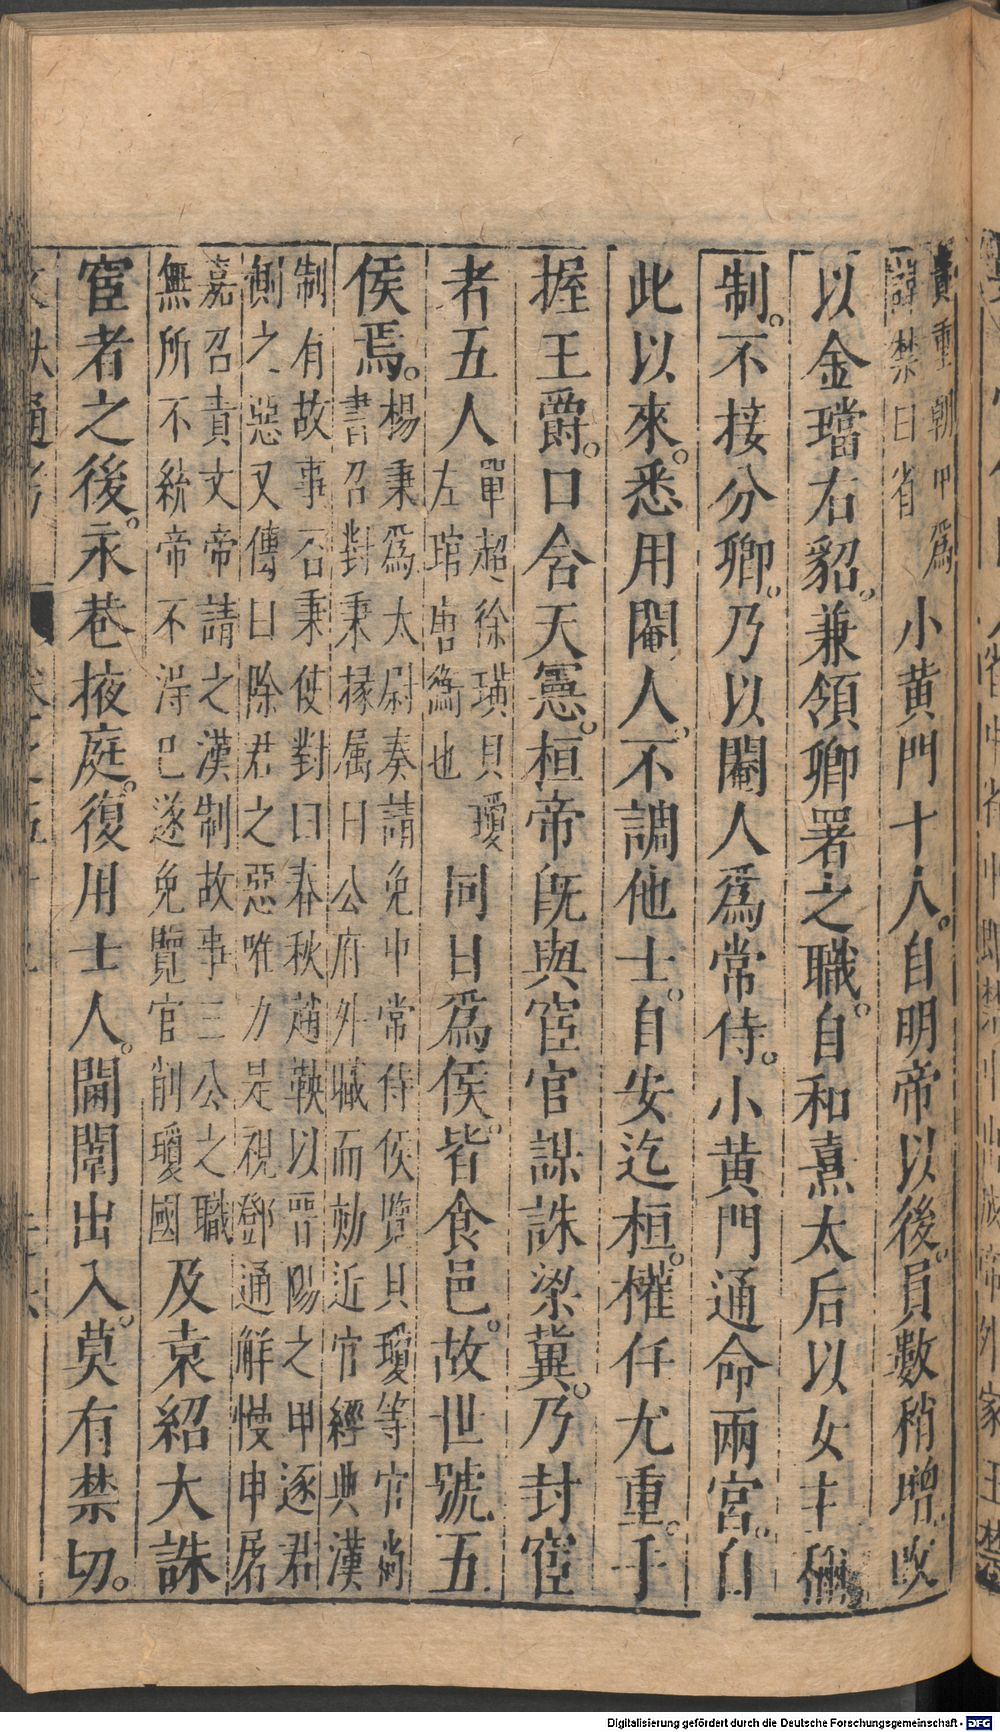 貴重朝中爲
諱禁曰省
小黄門十人。自明帝以後。員數稍增。改
以金璫右貂。兼領卿署之職。自和熹太后以女主稱
制。不接公卿。乃以閹人爲常侍。小黄門通命兩宮。自
此以來。悉用閹人。不調他士。自安迄桓。權任尤重。手
握王爵。口含天憲。桓帝旣與宦官謀誅梁冀。乃封宦
者五人
單超徐璜貝瓊
左琯唐衡也
同日爲侯。皆食邑。故世號五
侯焉。
楊秉爲太尉奏請免中常侍侯覽貝瓊等官尚
書召對秉掾属曰公府外職而劾近官經典漢
制有故事否秉使對曰春秋趙鞅以晉陽之甲逐君
側之惡又傳曰除君之惡唯力是視鄧通解慢申屠
嘉召責文帝請之漢制故事三公之職
無所不統帝不得已遂免覽官削瓊國
及袁紹大誅
宦者之後。永巷掖庭。復用士人。閫闈出入。莫有禁切。
文獻通考
Digitalisierung gefördert durch die Deutsche Forschungsgemeinschaft - DFG